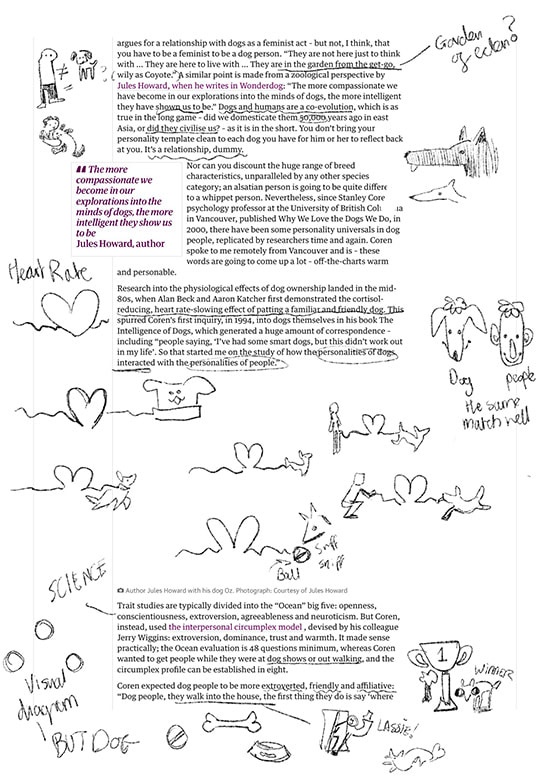 argues for a relationship with dogs as a feminist act - but not, I think, that
you have to be a feminist to be a dog person. “They are not here just to think
with ... They are here to live with ... They are in the garden from the get-go,
wily as Coyote.” A similar point is made from a zoological perspective by
Jules Howard, when he writes in Wonderdog: “The more compassionate we
have become in our explorations into the minds of dogs, the more intelligent
they have shown us to be.” Dogs and humans are a co-evolution, which is as
true in the long game - did we domesticate them 30,000 years ago in east
Asia, or did they civilise us? - as it is in the short. You don't bring your
personality template clean to each dog you have for him or her to reflect back
at you. It's a relationship, dummy.
Garden
of eden?
≠
?
The more
compassionate we
become in our
explorations into the
minds of dogs, the more
intelligent they show us
to be
Jules Howard, author
Nor can you discount the huge range of breed
characteristics, unparalleled by any other species
category; an alsatian person is going to be quite differe
to a whippet person. Nevertheless, since Stanley Core
psychology professor at the University of British Col
in Vancouver, published Why We Love the Dogs We Do, in
2000, there have been some personality universals in dog
people, replicated by researchers time and again. Coren
spoke to me remotely from Vancouver and is - these
words are going to come up a lot - off-the-charts warm
and personable.
Heart Rate
Research into the physiological effects of dog ownership landed in the mid-
80s, when Alan Beck and Aaron Katcher first demonstrated the cortisol-
reducing, heart rate-slowing effect of patting a familiar and friendly dog. This
spurred Coren's first inquiry, in 1994, into dogs themselves in his book The
Intelligence of Dogs, which generated a huge amount of correspondence -
including “people saying, ‘I've had some smart dogs, but this didn't work out
in my life’. So that started me on the study of how the personalities of dogs
interacted with the personalities of people.”
Dog
people
He sure
match well
Sniff
Sniff
Ball
Author Jules Howard with his dog Oz. Photograph: Courtesy of Jules Howard
SCIENCE
Trait studies are typically divided into the “Ocean” big five: openness,
conscientiousness, extroversion, agreeableness and neuroticism. But Coren,
instead, used the interpersonal circumplex model , devised by his colleague
Jerry Wiggins: extroversion, dominance, trust and warmth. It made sense
practically; the Ocean evaluation is 48 questions minimum, whereas Coren
wanted to get people while they were at dog shows or out walking, and the
circumplex profile can be established in eight.
Coren expected dog people to be more extroverted, friendly and affiliative:
“Dog people, they walk into the house, the first thing they do is say ‘where
1
WINNER
Visual
diagram
!
BUT DOG
LASSIE!